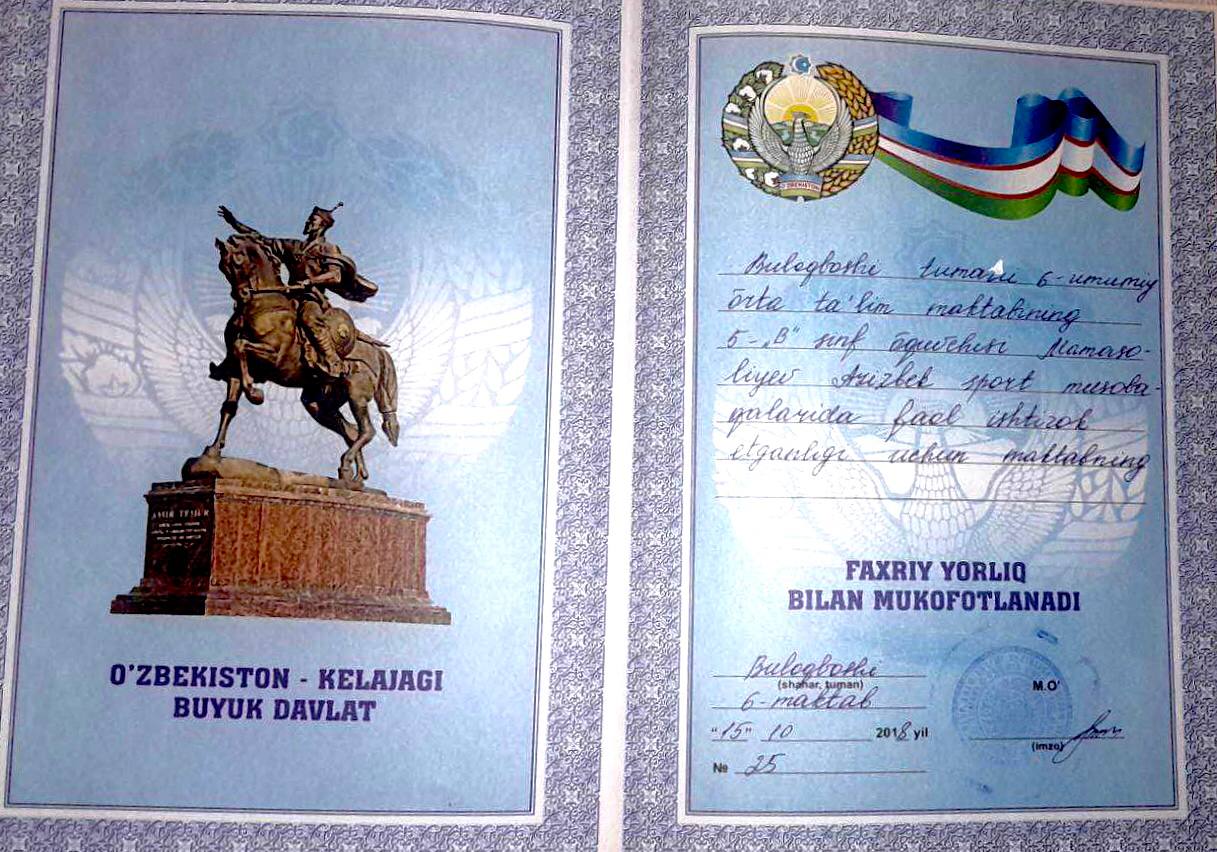 AMIR TEMUR
O'ZBEKISTON - KELAJAGI
BUYUK DAVLAT
O'ZBEKISTON
Buloqboshi tumani 6-umumiy
o̅rta ta'lim maktabining
5-„B" sinf o̅quvchisi Mamaso-
liyev Azizbek sport musoba-
qalarida faol ishtirok
etganligi uchun maktabning
FAXRIY YORLIQ
BILAN MUKOFOTLANADI
Buloqboshi
(shahar, tuman)
6-maktab
M.O'
"15" 10 2018 yil
(imzo)
№ 25